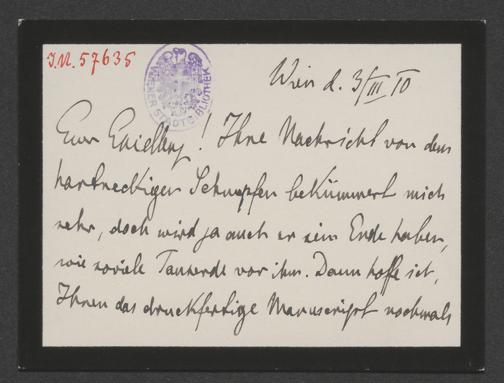 I.N. 57635
WIENER STADTBIBLIOTHEK
Wien d. 3/III 10
Euer Excellenz! Ihre Nachricht von dem
hartneckigen Schnupfen bekümmert mich
sehr, doch wird ja auch er sein Ende haben,
wie soviele Tausende vor ihm. Dann hoffe ich,
Ihnen das druckfertige Manuscript nochmals